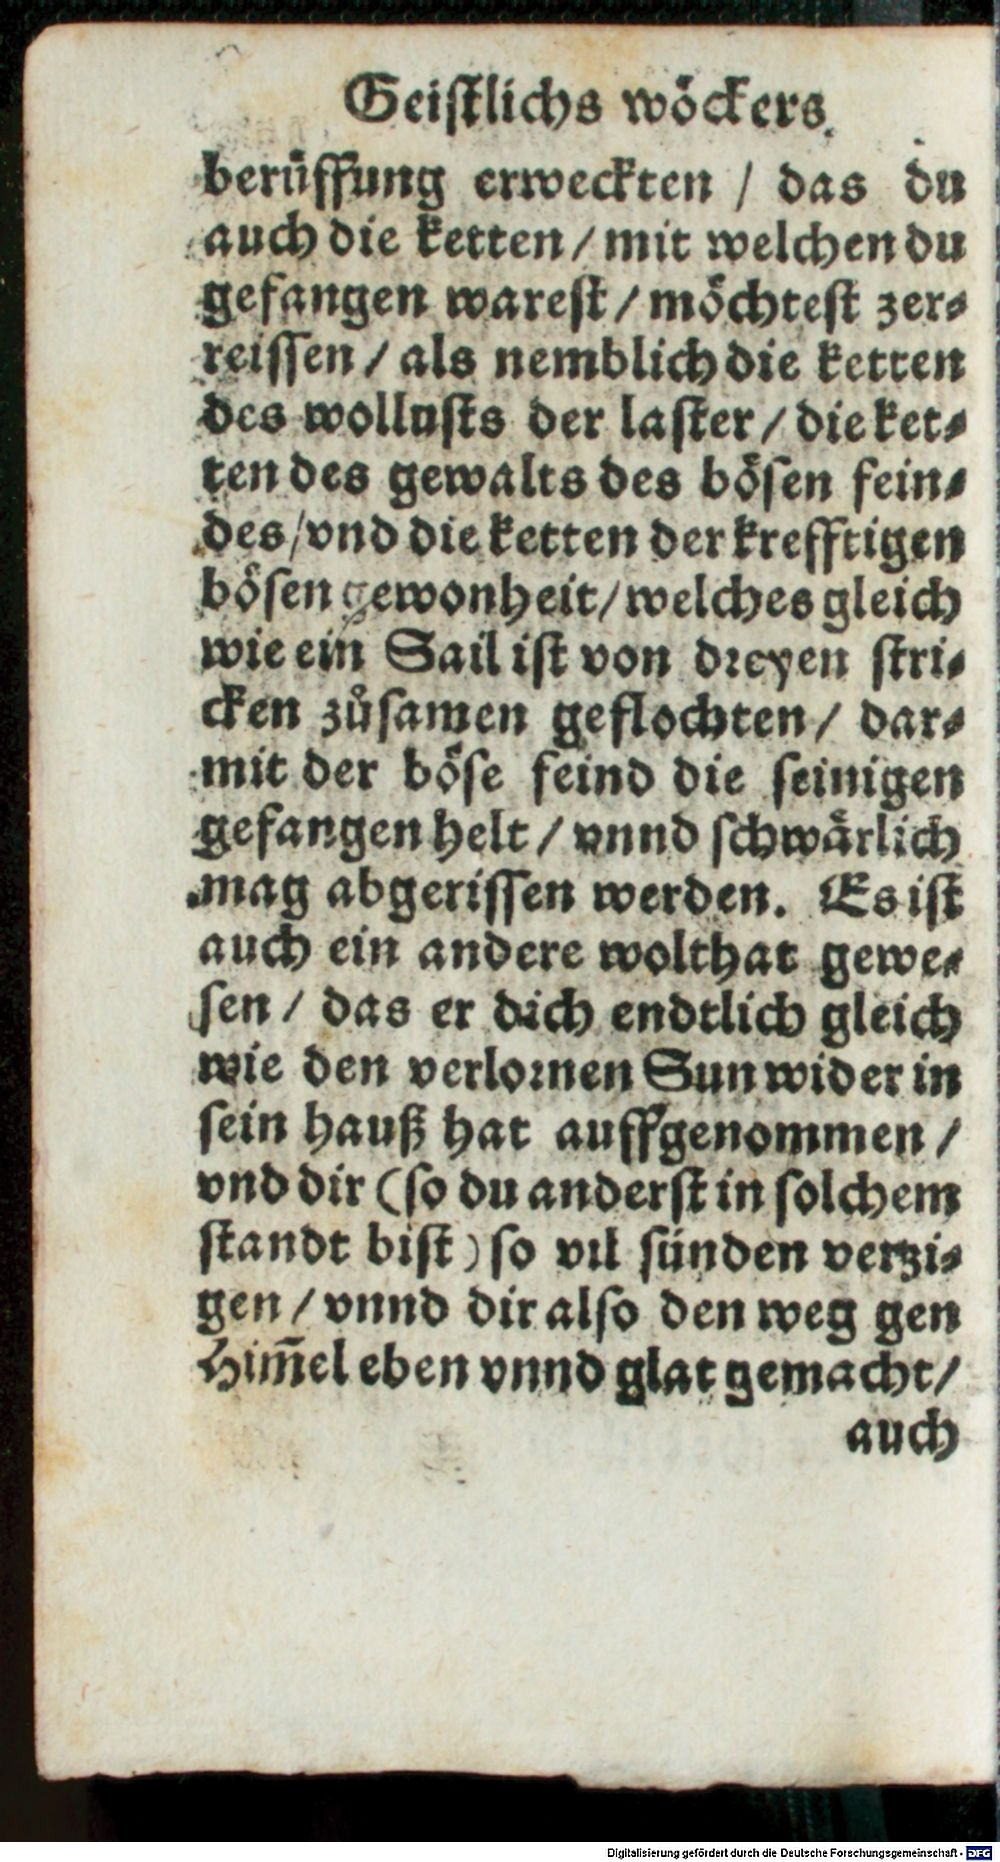 Geistlichs wöckers.
berüffung erweckten / das du
auch die ketten / mit welchen du
gefangen warest / möchtest zer⸗
reissen / als nemblich die ketten
des wollusts der laster / die ket⸗
ten des gewalts des bösen fein⸗
des / vnd die ketten der krefftigen
bösen gewonheit / welches gleich
wie ein Sail ist von dreyen stri⸗
cken zůsamen geflochten / dar⸗
mit der böse feind die seinigen
gefangen helt / vnnd schwärlich
mag abgerissen werden. Es ist
auch ein andere wolthat gewe⸗
sen / das er dich endtlich gleich
wie den verlornen Sun wider in
sein hauß hat auffgenommen /
vnd dir (so du anderst in solchem
standt bist) so vil sünden verzi⸗
gen / vnnd dir also den weg gen
Him̄el eben vnnd glat gemacht /
auch
Digitalisierung gefördert durch die Deutsche Forschungsgemeinschaft - DFG